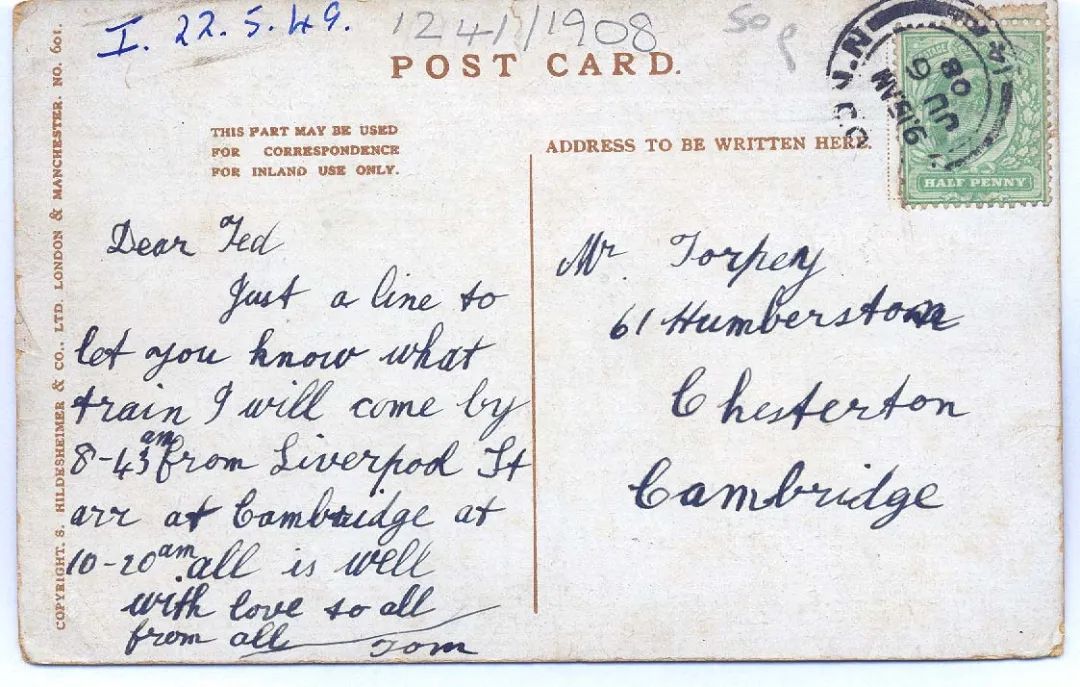 I. 22. 5. 49.
1241/1908
50
POST CARD.
THIS PART MAY BE USED
FOR CORRESPONDENCE
FOR INLAND USE ONLY.
ADDRESS TO BE WRITTEN HERE.
COPYRIGHT. S. HILDESHEIMER & CO., LTD. LONDON & MANCHESTER. NO. 601.
Dear Ted
Just a line to
let you know what
train I will come by
8-43 am from Liverpool St
arr at Cambridge at
10-20 am all is well
with love to all
from all Tom
Mr. Torpey
61 Humberstone
Chesterton
Cambridge
9.15 AM
JU 6
08
POSTAGE
HALF PENNY